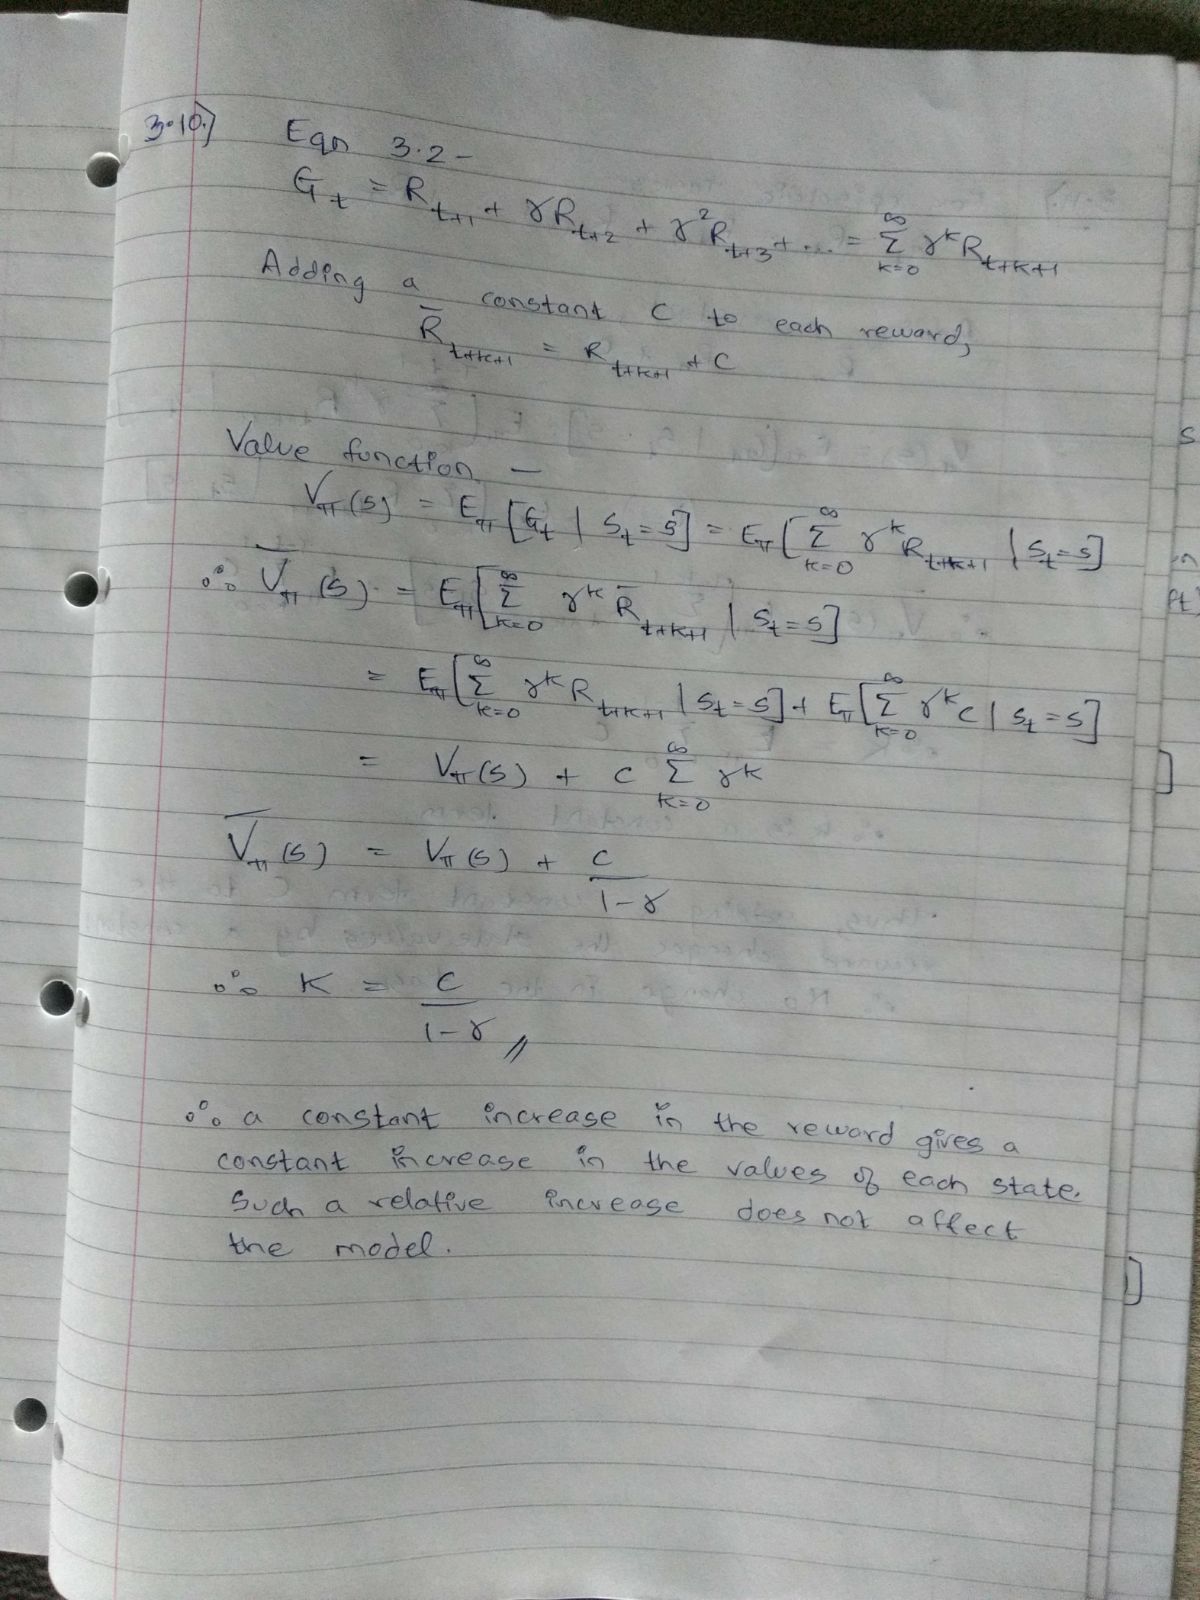 3.10.) Eqn 3.2 -
G_t = R_{t+1} + γR_{t+2} + γ²R_{t+3} + ... = Σ_{k=0}^{∞} γ^k R_{t+k+1}
Adding a constant C to each reward,
R̄_{t+k+1} = R_{t+k+1} + C
Value function -
V_π(s) = E_π[G_t | S_t = s] = E_π[Σ_{k=0}^{∞} γ^k R_{t+k+1} | S_t = s]
∴ V̄_π(s) = E_π[Σ_{k=0}^{∞} γ^k R̄_{t+k+1} | S_t = s]
= E_π[Σ_{k=0}^{∞} γ^k R_{t+k+1} | S_t = s] + E_π[Σ_{k=0}^{∞} γ^k C | S_t = s]
= V_π(s) + C Σ_{k=0}^{∞} γ^k
V̄_π(s) = V_π(s) + C/(1-γ)
∴ K = C/(1-γ) //
∴ a constant increase in the reward gives a
constant increase in the values of each state.
Such a relative increase does not affect
the model.